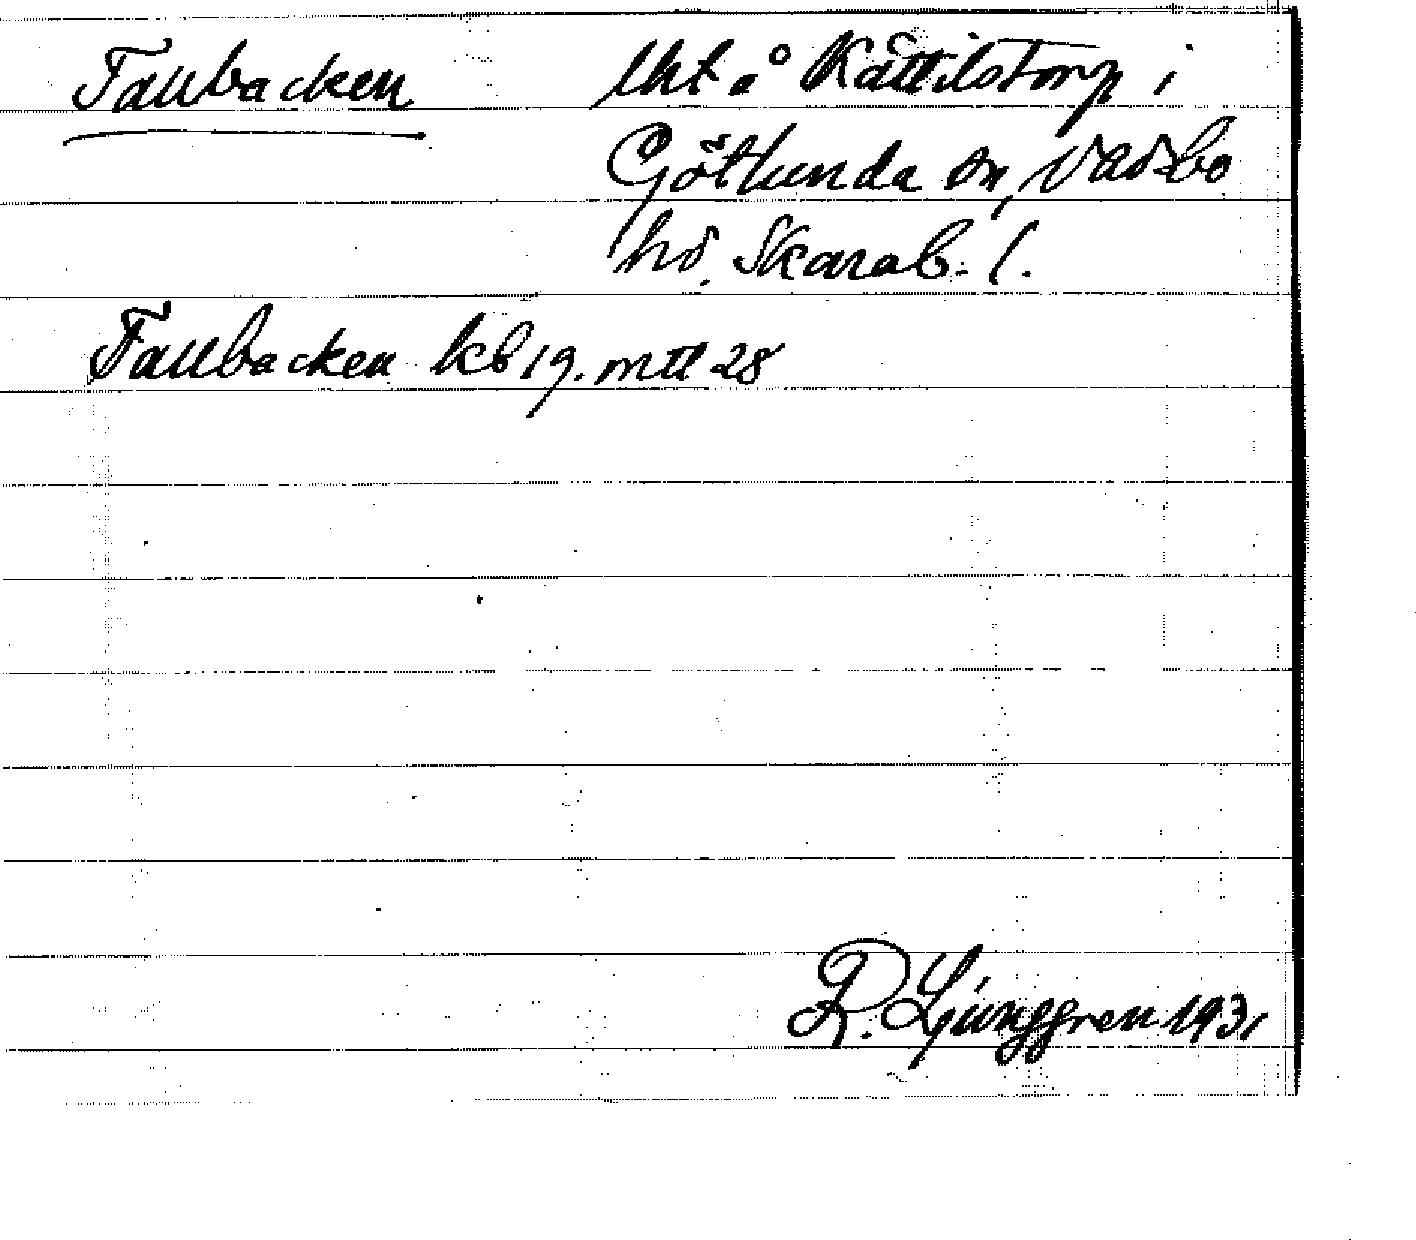 Tallbacken lht å Kättilstorp i
Götlunda sn, Vadsbo
hd. Skarab. l.
Tallbacken kb 19. mtl 28
R. Ljunggren 1931